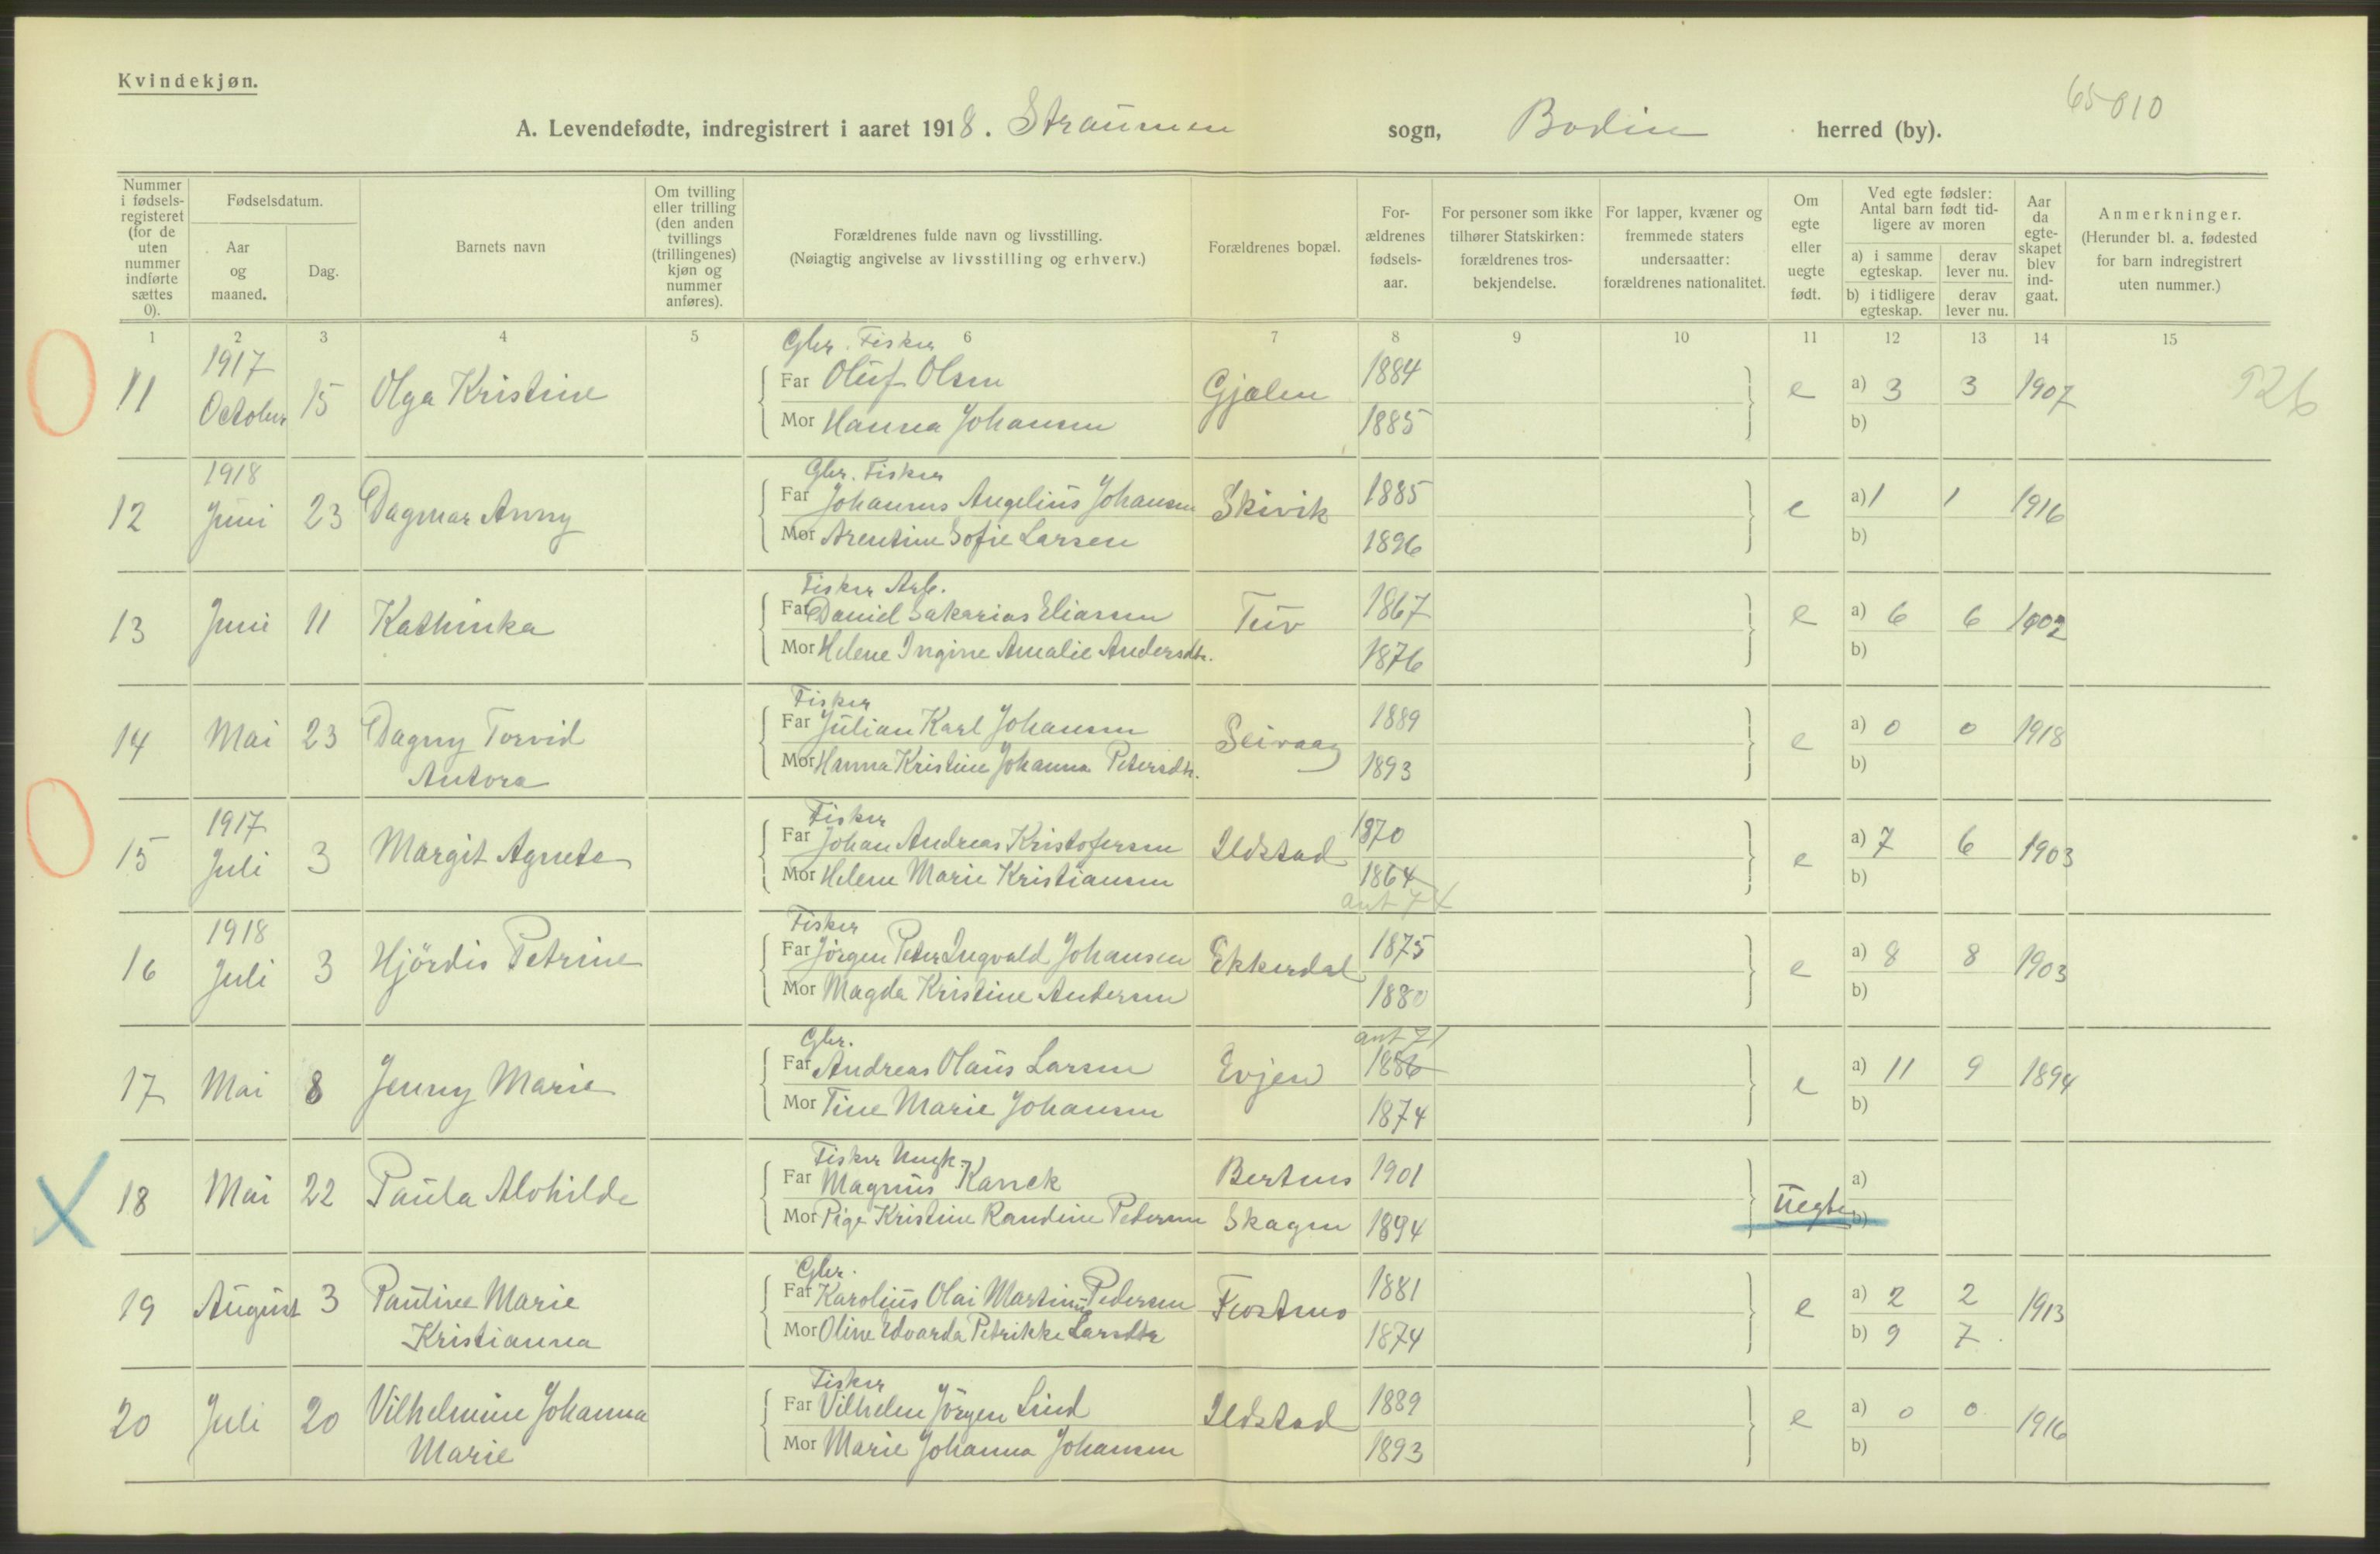 Kvindekjøn.
65010
A. Levendefødte, indregistrert i aaret 1918. Straumen sogn, Bodin herred (by).
Nummer i fødsels-registeret (for de uten nummer indførte sættes 0).
Fødselsdatum.
Aar og maaned.
Dag.
Barnets navn
Om tvilling eller trilling (den anden tvillings (trillingenes) kjøn og nummer anføres).
Forældrenes fulde navn og livsstilling.
(Nøiagtig angivelse av livsstilling og erhverv.)
Forældrenes bopæl.
For-ældrenes fødsels-aar.
For personer som ikke tilhører Statskirken: forældrenes tros-bekjendelse.
For lapper, kvæner og fremmede staters undersaatter: forældrenes nationalitet.
Om egte eller uegte født.
Ved egte fødsler: Antal barn født tid-ligere av moren
a) i samme egteskap.
derav lever nu.
b) i tidligere egteskap.
derav lever nu.
Aar da egte-skapet blev ind-gaat.
Anmerkninger.
(Herunder bl. a. fødested for barn indregistrert uten nummer.)
1 2 3 4 5 6 7 8 9 10 11 12 13 14 15
Gbr. Fisker
11 1917 October 15 Olga Kristine Far Oluf Olsen Gjælen 1884 e a) 3 3 1907
Mor Hanna Johansen 1885 b)
Gbr. Fisker
12 1918 Juni 23 Dagmar Anny Far Johannes Angelius Johansen Skivik 1885 e a) 1 1 1916
Mor Arentine Sofie Larsen 1896 b)
Fisker Arb.
13 Juni 11 Kathinka Far Daniel Sakarias Eliassen Tuv 1867 e a) 6 6 1902
Mor Helene Ingine Amalie Andersdtr. 1876 b)
Fisker
14 Mai 23 Dagny Torvid Far Julian Karl Johansen Seivaag 1889 e a) 0 0 1918
Antora Mor Hanna Kristine Johanna Petersdtr. 1893 b)
Fisker
15 1917 Juli 3 Margit Agnete Far Johan Andreas Kristofersen Ildstad 1870 e a) 7 6 1903
Mor Helene Marie Kristiansen 1864 b)
ant 74
Fisker
16 1918 Juli 3 Hjördis Petrine Far Jörgen Peter Ingvald Johansen Ekkerdal 1875 e a) 8 8 1903
Mor Magda Kristine Andersen 1880 b)
Gbr. ant 71
17 Mai 8 Jenny Marie Far Andreas Olaus Larsen Evjen 1886 e a) 11 9 1894
Mor Tine Marie Johansen 1874 b)
Fisker Ungk.
18 Mai 22 Paula Alvhilde Far Magnus Bertnes 1901 uegte a)
Mor Pige Kristine Randine Pedersen Skagen 1894 b)
Gbr.
19 August 3 Pauline Marie Far Karolius Olai Martinus Pedersen 1881 e a) 2 2 1913
Kristianna Mor Oline Edvarda Petrikke Larsdtr 1874 b) 9 7
Fisker
20 Juli 20 Vilhelmine Johanna Far Vilhelm Jörgen Lind Ildstad 1889 e a) 0 0 1916
Marie Mor Marie Johanna Johansen 1893 b)